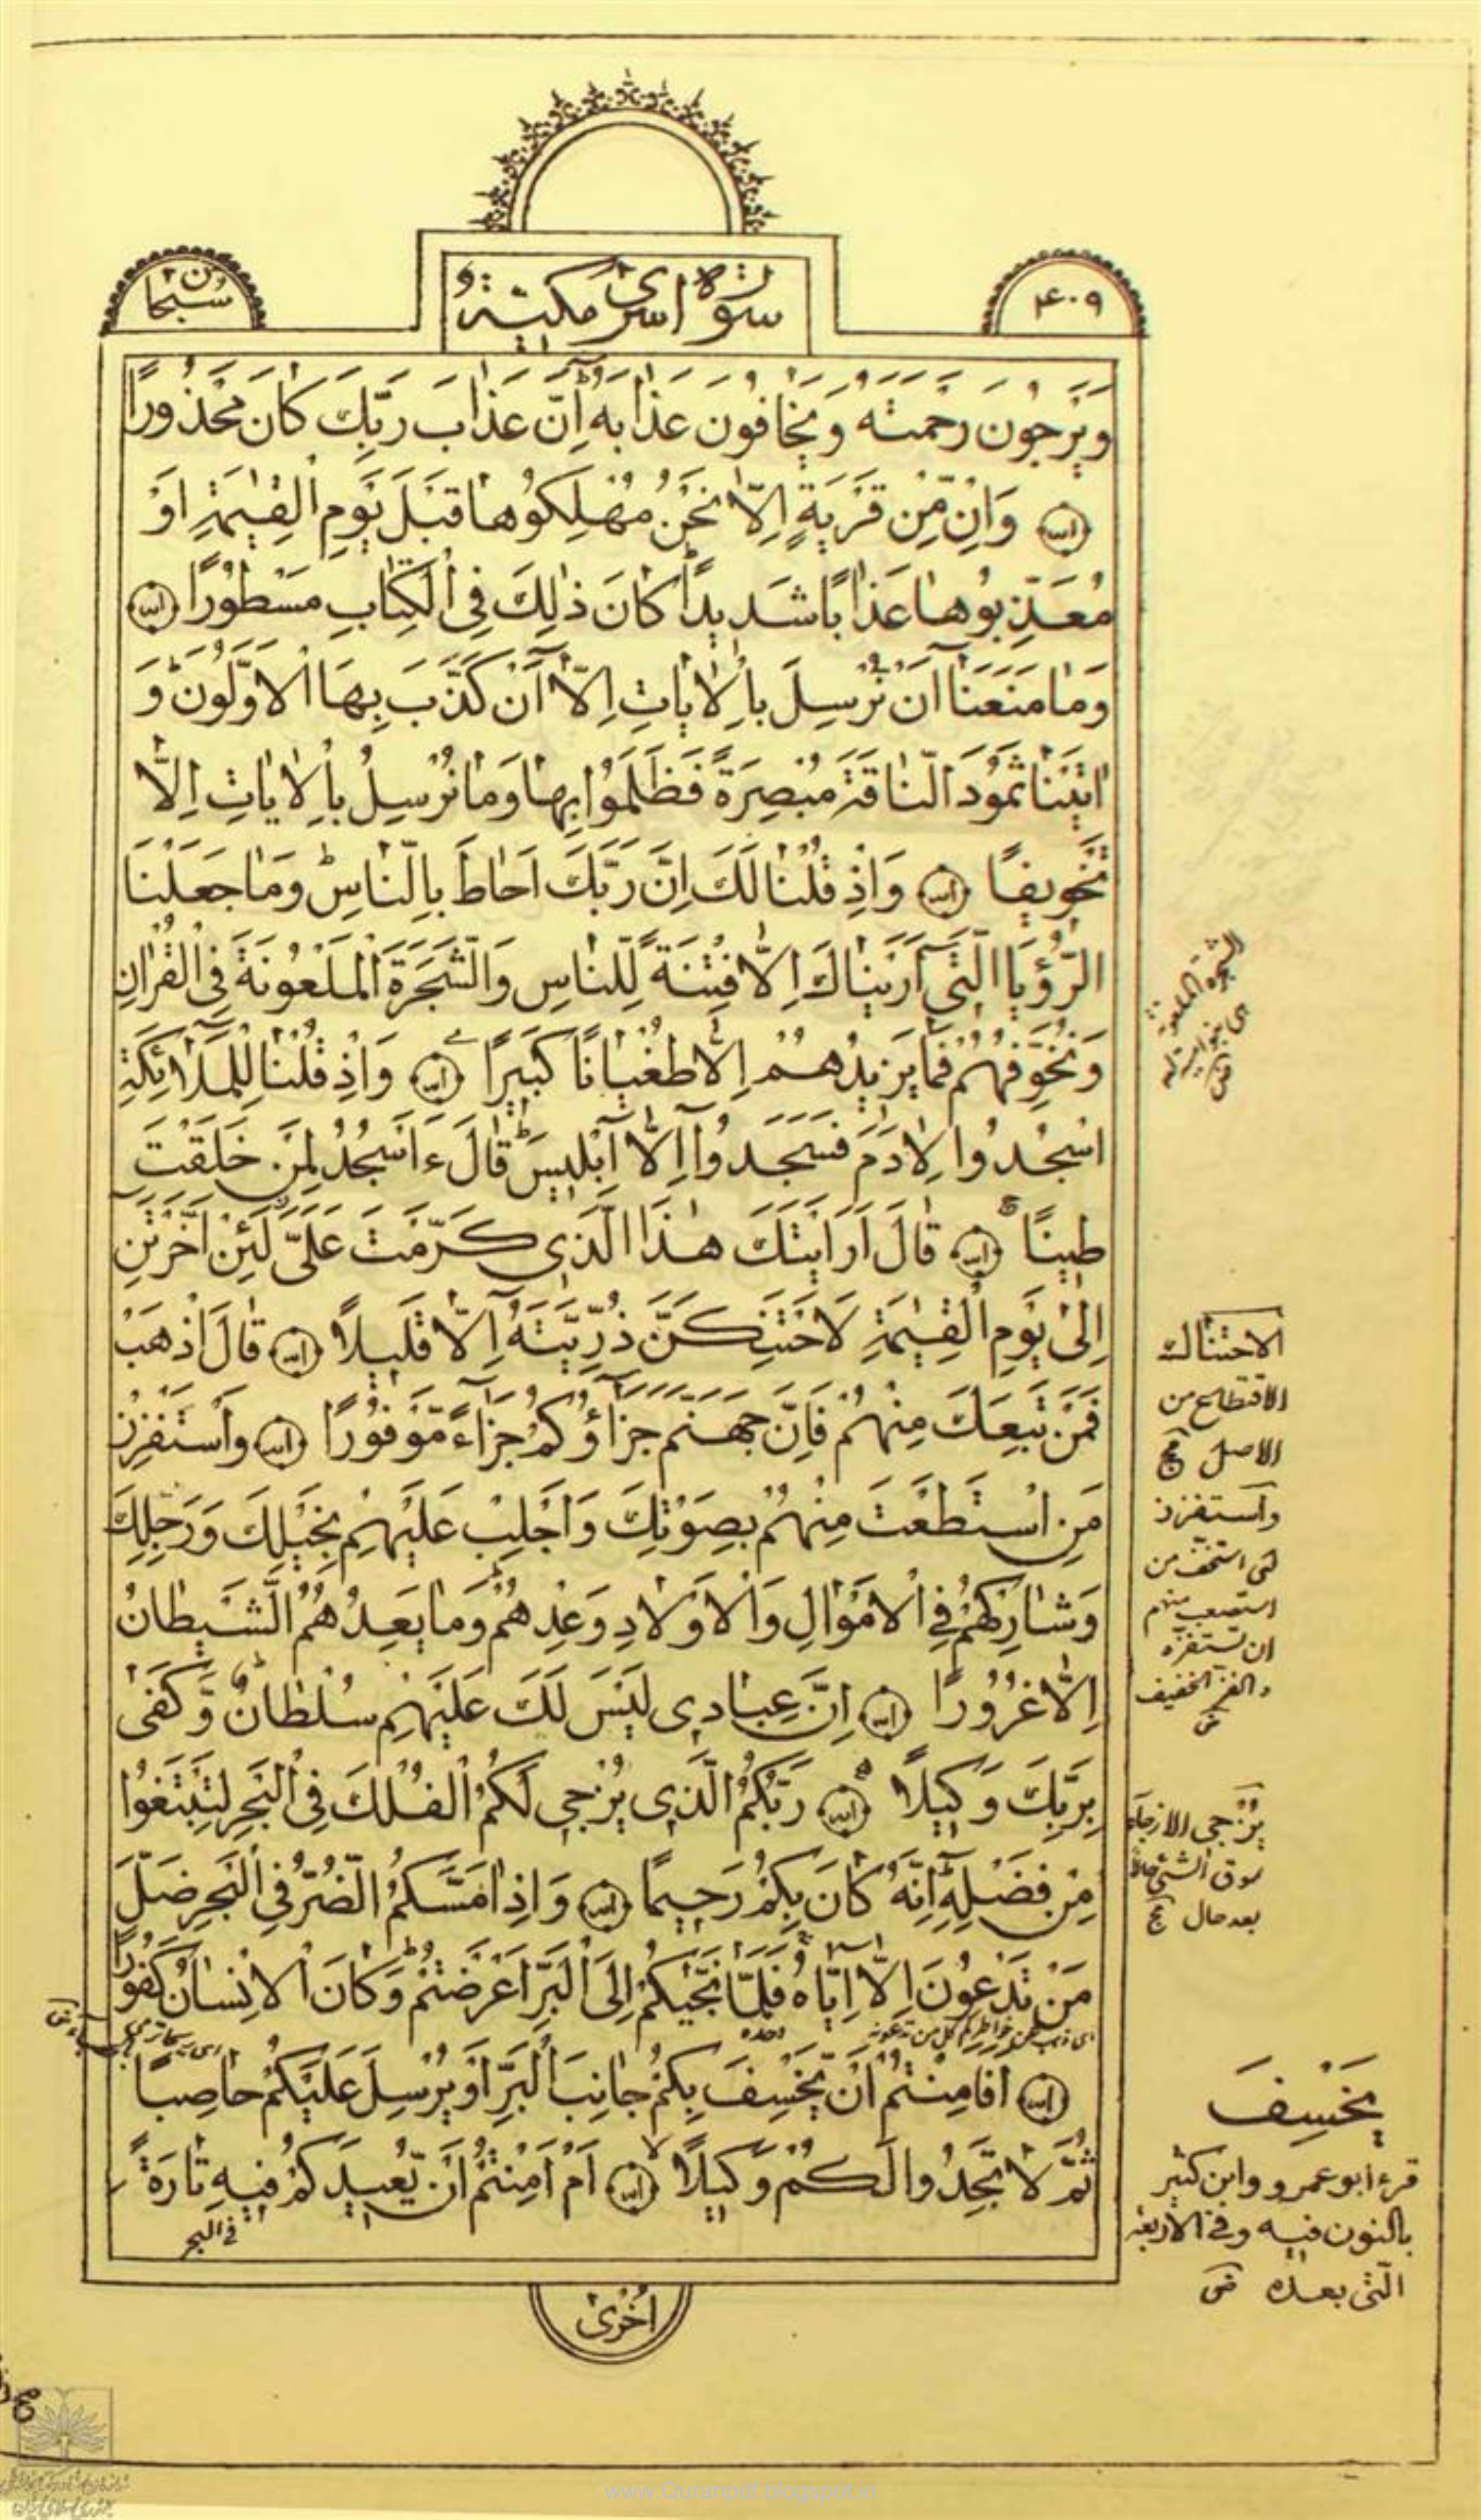 ۴۰۹
سورة اسرى مكية
سبحان
وَيَرْجُونَ رَحْمَتَهُ وَيَخَافُونَ عَذَابَهُ إِنَّ عَذَابَ رَبِّكَ كَانَ مَحْذُورًا
وَإِنْ مِّنْ قَرْيَةٍ إِلَّا نَحْنُ مُهْلِكُوهَا قَبْلَ يَوْمِ الْقِيٰمَةِ أَوْ
مُعَذِّبُوهَا عَذَابًا شَدِيدًا كَانَ ذٰلِكَ فِي الْكِتَابِ مَسْطُورًا
وَمَا مَنَعَنَا أَنْ نُرْسِلَ بِالْاٰيَاتِ إِلَّا أَنْ كَذَّبَ بِهَا الْأَوَّلُونَ وَ
اٰتَيْنَا ثَمُودَ النَّاقَةَ مُبْصِرَةً فَظَلَمُوا بِهَا وَمَا نُرْسِلُ بِالْاٰيَاتِ إِلَّا
تَخْوِيفًا وَإِذْ قُلْنَا لَكَ إِنَّ رَبَّكَ أَحَاطَ بِالنَّاسِ وَمَا جَعَلْنَا
الرُّؤْيَا الَّتِي أَرَيْنَاكَ إِلَّا فِتْنَةً لِّلنَّاسِ وَالشَّجَرَةَ الْمَلْعُونَةَ فِي الْقُرْاٰنِ
وَنُخَوِّفُهُمْ فَمَا يَزِيدُهُمْ إِلَّا طُغْيَانًا كَبِيرًا وَإِذْ قُلْنَا لِلْمَلَائِكَةِ
اسْجُدُوا لِاٰدَمَ فَسَجَدُوا إِلَّا إِبْلِيسَ قَالَ ءَأَسْجُدُ لِمَنْ خَلَقْتَ
طِينًا قَالَ أَرَأَيْتَكَ هٰذَا الَّذِي كَرَّمْتَ عَلَيَّ لَئِنْ أَخَّرْتَنِ
إِلىٰ يَوْمِ الْقِيٰمَةِ لَأَحْتَنِكَنَّ ذُرِّيَّتَهُ إِلَّا قَلِيلًا قَالَ اذْهَبْ
فَمَنْ تَبِعَكَ مِنْهُمْ فَإِنَّ جَهَنَّمَ جَزَاؤُكُمْ جَزَاءً مَّوْفُورًا وَاسْتَفْزِزْ
مَنِ اسْتَطَعْتَ مِنْهُمْ بِصَوْتِكَ وَأَجْلِبْ عَلَيْهِمْ بِخَيْلِكَ وَرَجِلِكَ
وَشَارِكْهُمْ فِي الْأَمْوَالِ وَالْأَوْلَادِ وَعِدْهُمْ وَمَا يَعِدُهُمُ الشَّيْطَانُ
إِلَّا غُرُورًا إِنَّ عِبَادِي لَيْسَ لَكَ عَلَيْهِمْ سُلْطَانٌ وَّكَفىٰ
بِرَبِّكَ وَكِيلًا رَبُّكُمُ الَّذِي يُزْجِي لَكُمُ الْفُلْكَ فِي الْبَحْرِ لِتَبْتَغُوا
مِنْ فَضْلِهِ إِنَّهُ كَانَ بِكُمْ رَحِيمًا وَإِذَا مَسَّكُمُ الضُّرُّ فِي الْبَحْرِ ضَلَّ
مَنْ تَدْعُونَ إِلَّا إِيَّاهُ فَلَمَّا نَجّٰيكُمْ إِلَى الْبَرِّ أَعْرَضْتُمْ وَكَانَ الْإِنْسَانُ كَفُورًا
وحده
أَفَأَمِنْتُمْ أَنْ يَّخْسِفَ بِكُمْ جَانِبَ الْبَرِّ أَوْ يُرْسِلَ عَلَيْكُمْ حَاصِبًا
ثُمَّ لَا تَجِدُوا لَكُمْ وَكِيلًا أَمْ أَمِنْتُمْ أَنْ يُّعِيدَكُمْ فِيهِ تَارَةً
فى البحر
أُخْرىٰ
الشجرة الملعونة
الاحتناك
الاقتطاع من
الاصل
واستفزز
استخف من
ان تستفزه
والفز الخفيف
يُزْجِي الازجاء
سوق الشئ حالا
بعد حال
يَخْسِفَ
قرء ابو عمرو وابن كثير
بالنون فيه وفى الاربعة
التى بعده
www.Quranpdf.blogspot.in